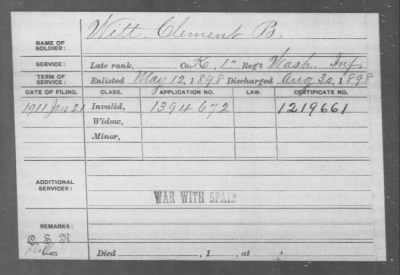 NAME OF SOLDIER: Witt, Clement B.
SERVICE: Late rank, Co. K, 1" Reg't Wash. Inf.
TERM OF SERVICE: Enlisted May 12, 1898 Discharged Aug 30, 1898
DATE OF FILING. CLASS. APPLICATION NO. LAW. CERTIFICATE NO.
1911 Jan 21 Invalid, 1394672 1219661
Widow,
Minor,
ADDITIONAL SERVICES:
WAR WITH SPAIN
REMARKS:
Died , 1 , at